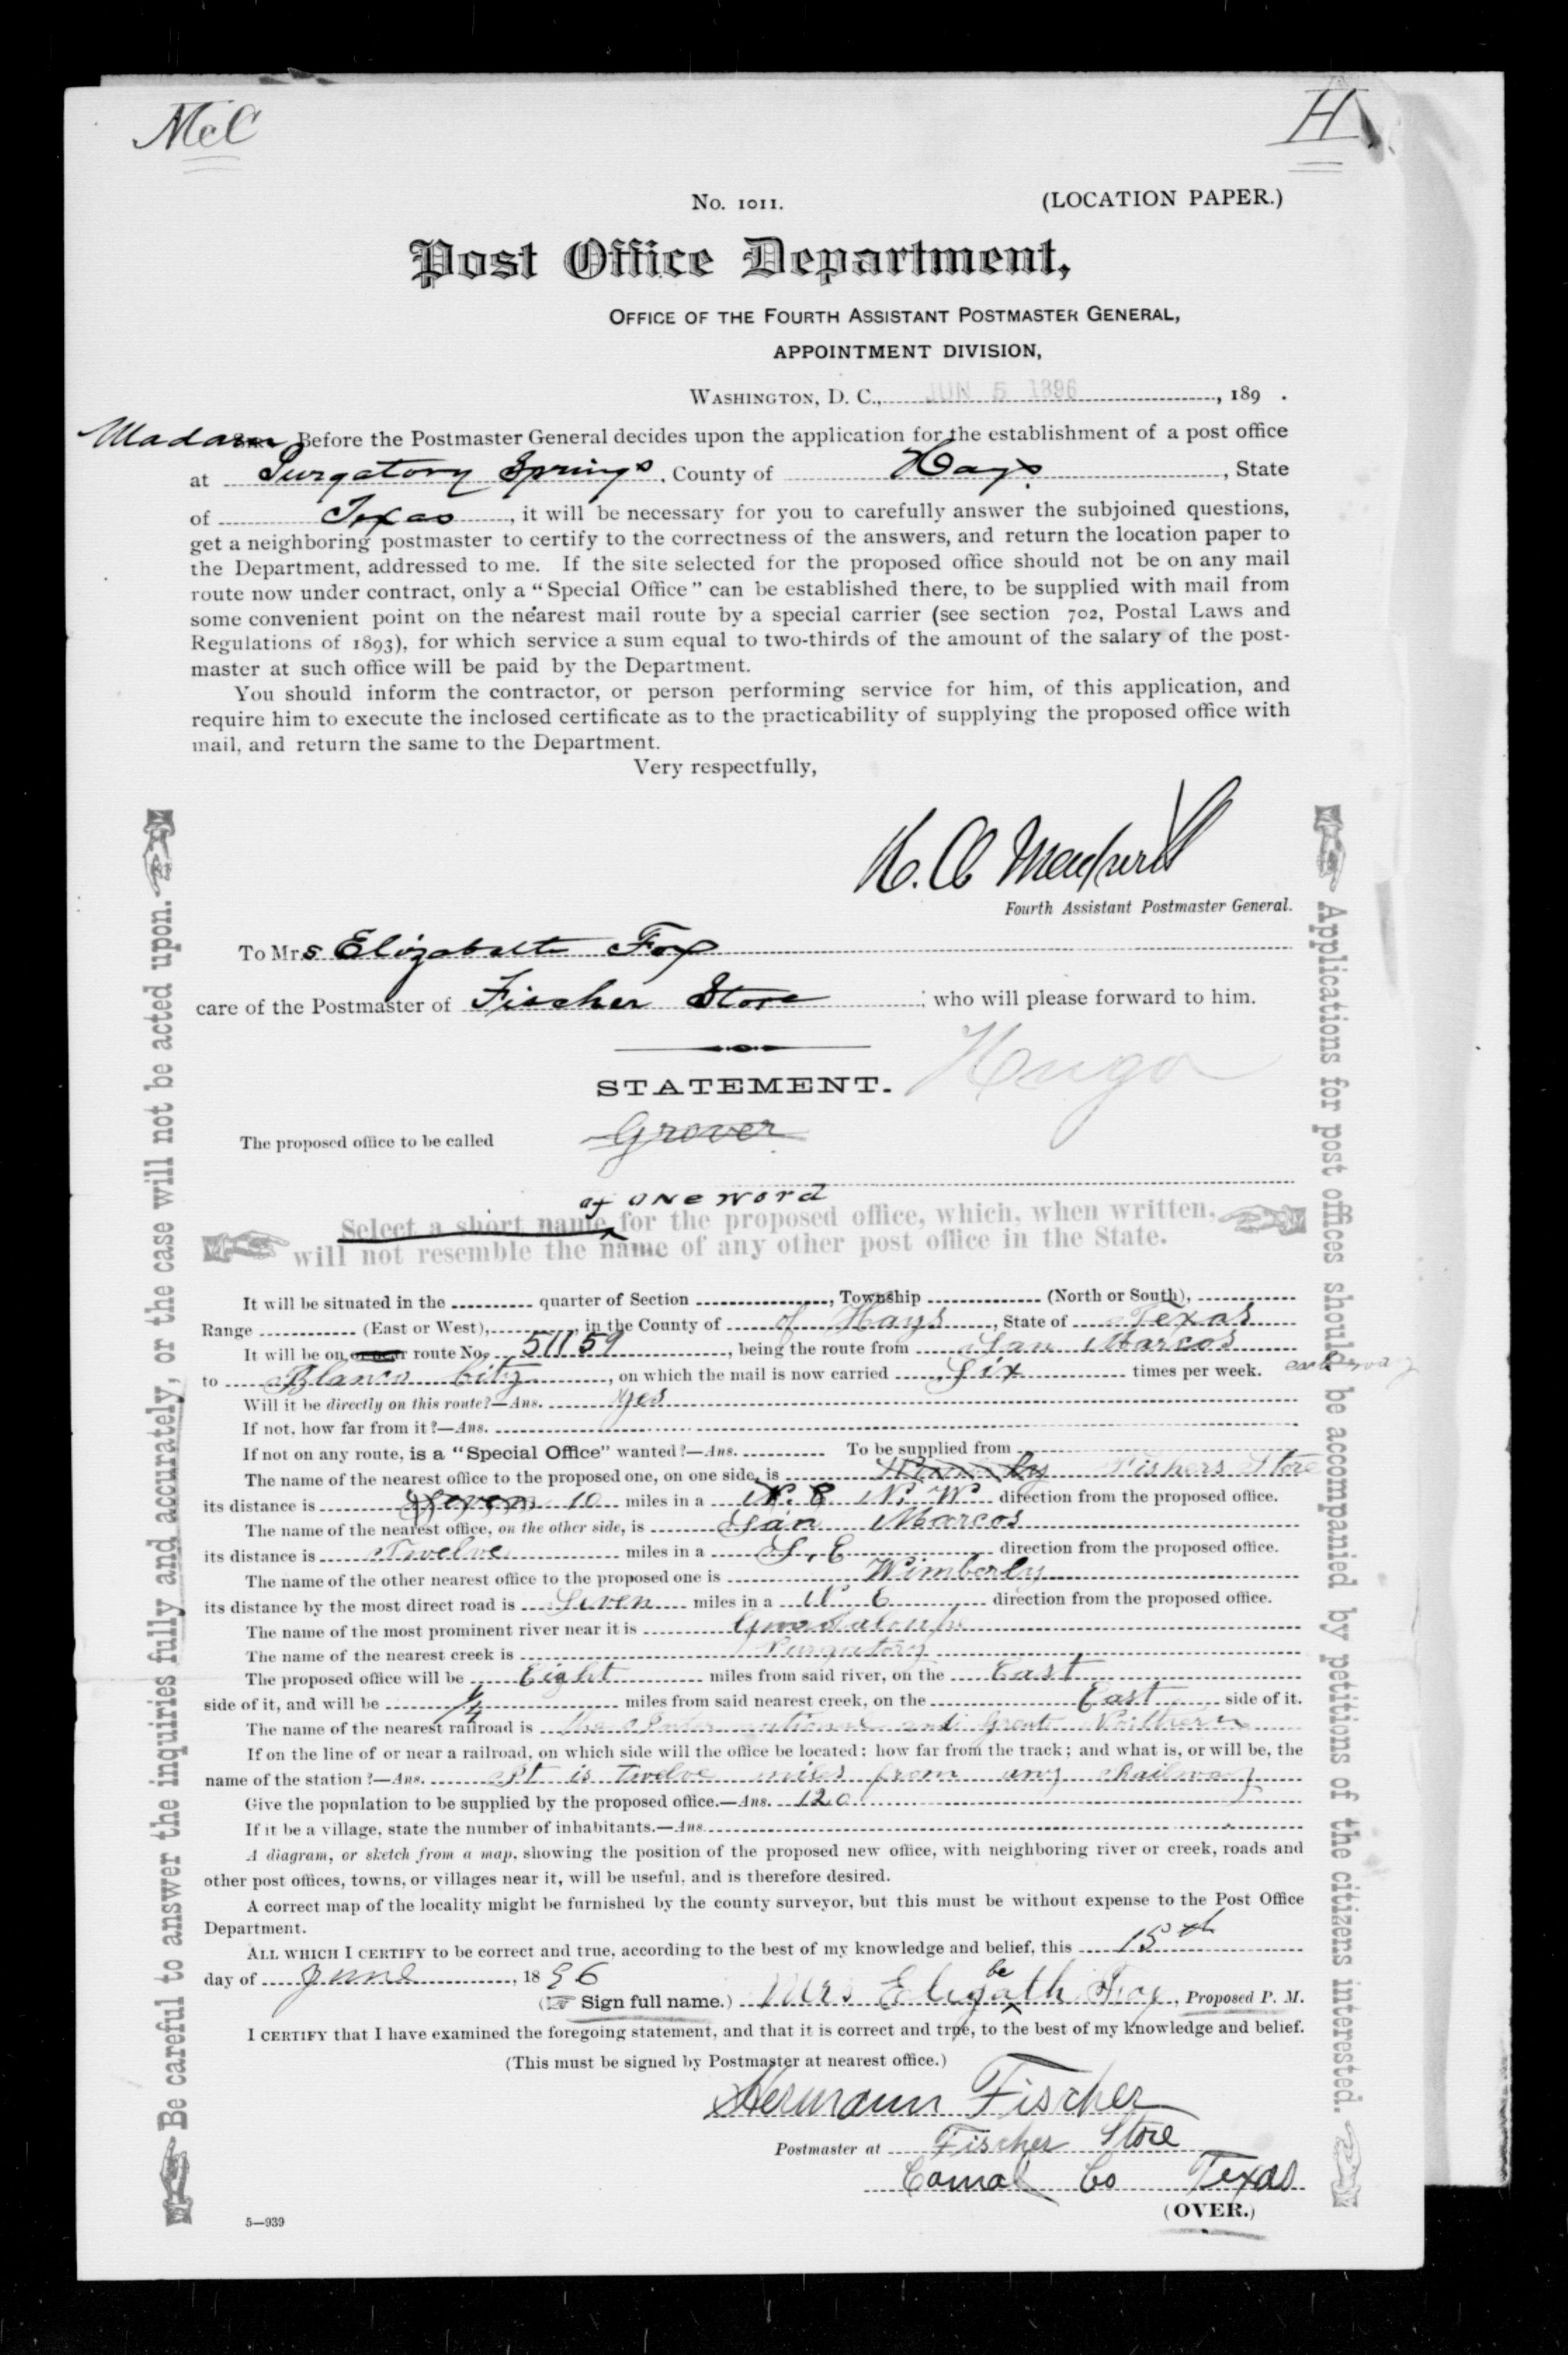 McC
H
No. 1011.
(LOCATION PAPER.)
Post Office Department,
OFFICE OF THE FOURTH ASSISTANT POSTMASTER GENERAL,
APPOINTMENT DIVISION,
WASHINGTON, D. C., JUN 5 1896, 189 .
Madam Before the Postmaster General decides upon the application for the establishment of a post office
at Purgatory Springs, County of Hays, State
of Texas, it will be necessary for you to carefully answer the subjoined questions,
get a neighboring postmaster to certify to the correctness of the answers, and return the location paper to
the Department, addressed to me. If the site selected for the proposed office should not be on any mail
route now under contract, only a "Special Office" can be established there, to be supplied with mail from
some convenient point on the nearest mail route by a special carrier (see section 702, Postal Laws and
Regulations of 1893), for which service a sum equal to two-thirds of the amount of the salary of the post-
master at such office will be paid by the Department.
You should inform the contractor, or person performing service for him, of this application, and
require him to execute the inclosed certificate as to the practicability of supplying the proposed office with
mail, and return the same to the Department.
Very respectfully,
Fourth Assistant Postmaster General.
To Mrs Elizabeth Fox
care of the Postmaster of Fischer Store ; who will please forward to him.
STATEMENT.
Hugo
The proposed office to be called Grover
of one word
Select a short name for the proposed office, which, when written,
will not resemble the name of any other post office in the State.
It will be situated in the quarter of Section , Township (North or South),
Range (East or West), , in the County of of Hays, State of Texas
It will be on or near route No. 51159, being the route from San Marcos
to Blanco City, on which the mail is now carried Six times per week. each way
Will it be directly on this route?—Ans. yes
If not, how far from it?—Ans.
If not on any route, is a "Special Office" wanted?—Ans. To be supplied from
The name of the nearest office to the proposed one, on one side, is Wimberley Fishers Store
its distance is Seven 10 miles in a N. E N. W direction from the proposed office.
The name of the nearest office, on the other side, is San Marcos
its distance is Twelve miles in a S. E direction from the proposed office.
The name of the other nearest office to the proposed one is Wimberly
its distance by the most direct road is Seven miles in a N E direction from the proposed office.
The name of the most prominent river near it is Guadaloupe
The name of the nearest creek is Purgatory
The proposed office will be Eight miles from said river, on the East
side of it, and will be 1/4 miles from said nearest creek, on the East side of it.
The name of the nearest railroad is the International and Great Northern
If on the line of or near a railroad, on which side will the office be located; how far from the track; and what is, or will be, the
name of the station?—Ans. It is Twelve miles from any Railway
Give the population to be supplied by the proposed office.—Ans. 120
If it be a village, state the number of inhabitants.—Ans.
A diagram, or sketch from a map, showing the position of the proposed new office, with neighboring river or creek, roads and
other post offices, towns, or villages near it, will be useful, and is therefore desired.
A correct map of the locality might be furnished by the county surveyor, but this must be without expense to the Post Office
Department.
ALL WHICH I CERTIFY to be correct and true, according to the best of my knowledge and belief, this 15th
day of June, 1896
be
(Sign full name.) Mrs Elizath Fox, Proposed P. M.
I CERTIFY that I have examined the foregoing statement, and that it is correct and true, to the best of my knowledge and belief.
(This must be signed by Postmaster at nearest office.)
Hermann Fischer
Postmaster at Fischer Store
Comal Co Texas
(OVER.)
5—939
Be careful to answer the inquiries fully and accurately, or the case will not be acted upon.
Applications for post offices should be accompanied by petitions of the citizens interested.